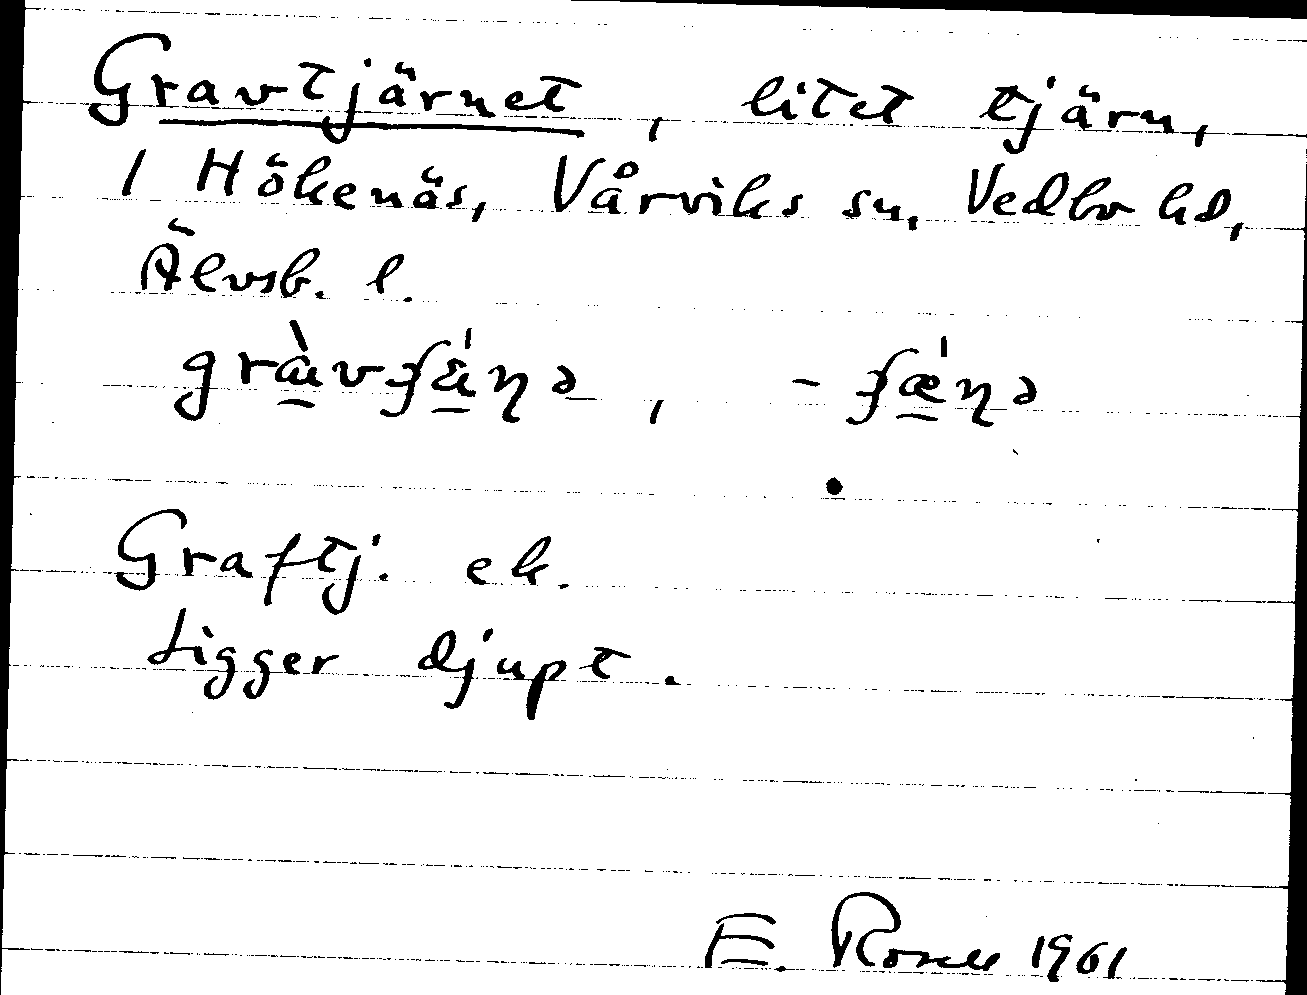 Gravtjärnet, litet tjärn,
1 Hökenäs, Vårviks sn, Vedbo hd,
Älvsb. l.
Graftj. ek.
Ligger djupt.
E. Rosell 1961